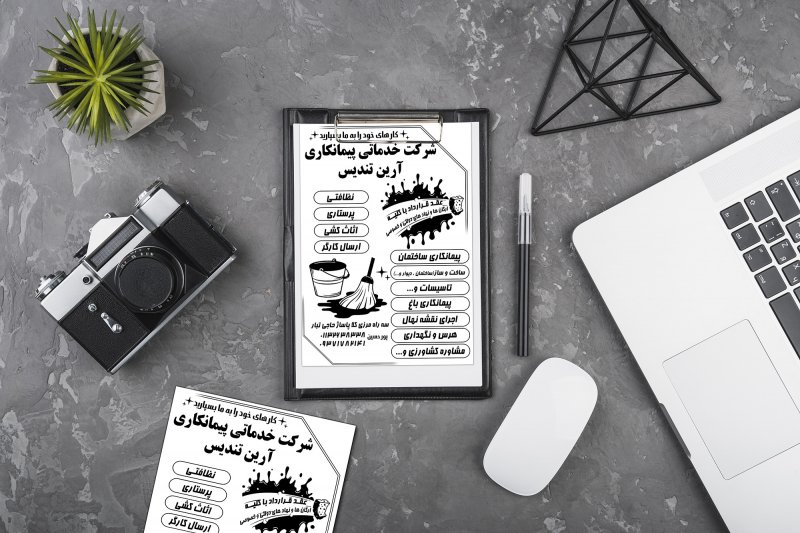 کارهای خود را به ما بسپارید
شرکت خدماتی پیمانکاری
آرین تندیس
نظافتی
پرستاری
اثاث کشی
ارسال کارگر
عقد قرارداد با کلیه
ارگان ها و نهاد های دولتی و خصوصی
پیمانکاری ساختمان
ساخت و ساز ساختمان ، دیوار و...
تاسیسات و...
پیمانکاری باغ
اجرای نقشه نهال
هرس و نگهداری
مشاوره کشاورزی و...
سه راه مرزی کلا پاساژ حاجی تبار
۰۱۱۳۲۳۸۳۳۸
۰۹۳۷۱۷۸۲۱۴۱
کارهای خود را به ما بسپارید
شرکت خدماتی پیمانکاری
آرین تندیس
نظافتی
پرستاری
اثاث کشی
ارسال کارگر
عقد قرارداد با کلیه
ارگان ها و نهاد های دولتی و خصوصی